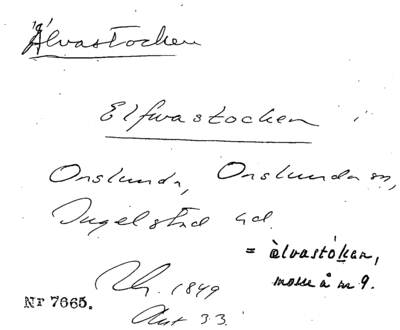 Älvastocken
Elfwastocken i
Onslunda, Onslunda sn,
Ingelstad hd.
= àlvastókan,
mosse å n 9.
1849
Nr 7665.
Akt 33.